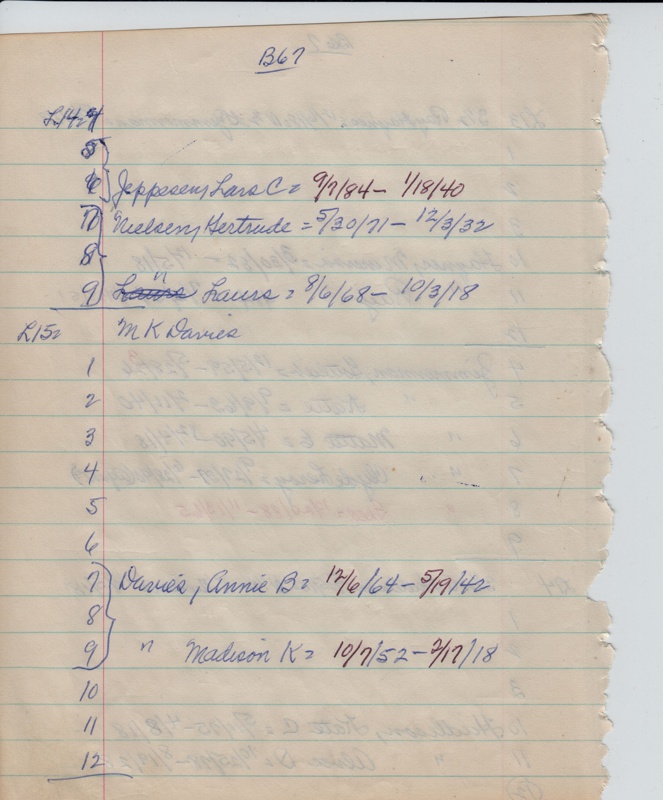 B67
L14= 4
5
6 Jeppesen, Lars C = 9/7/84 - 1/18/40
7 Nielsen, Gertrude = 5/30/71 - 12/3/32
8
9 " Laura = 8/6/68 - 10/3/18
L15= M K Davies
1
2
3
4
5
6
7 Davies, Annie B = 12/6/64 - 5/19/42
8
9 " Madison K = 10/7/52 - 2/17/18
10
11
12